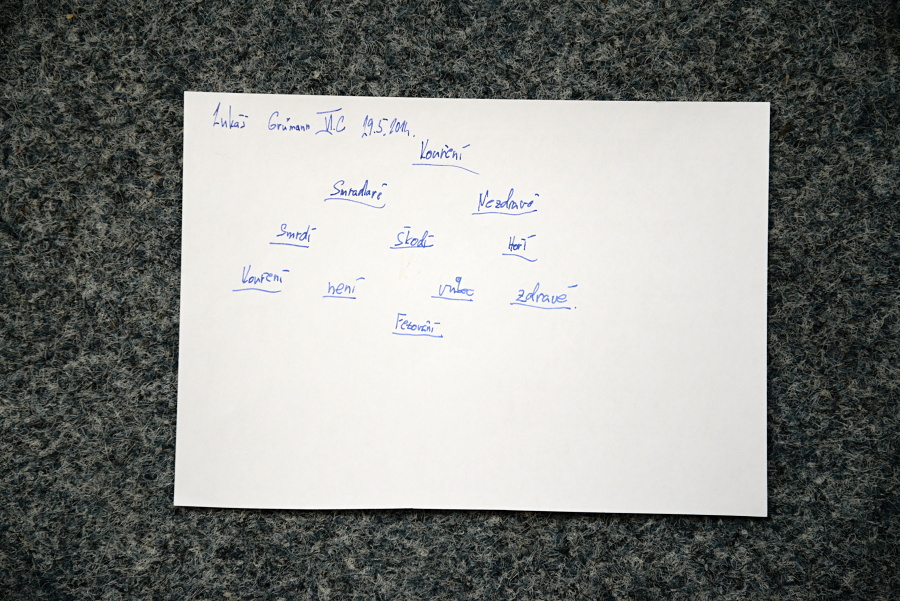 Lukáš Grúmann VI.C 19.5.2014.
Kouření
Smradlavé Nezdravé
Smrdí Škodí Hoří
Kouření není vůbec zdravé.